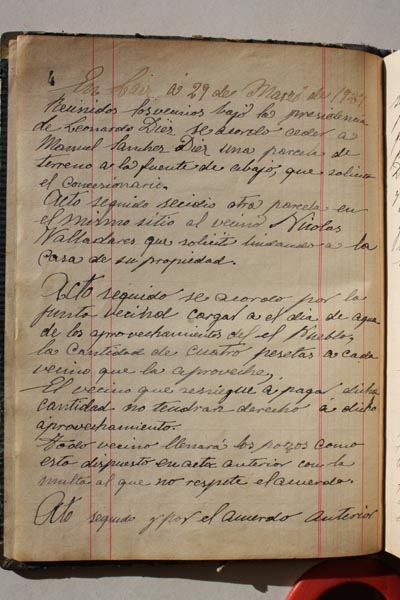 4
En Caiz á 29 de Marzo de 19
Reunidos los vecinos bajo la presidencia
de Leonardo Diez se acordo ceder a
Manuel Sanchez Diez una parcela de
terreno a la fuente de abajo, que solicita
el concesionario.
Acto seguido se cidio otra parcela en
el mismo sitio al vecino Nicolas
Valladares que solicitó lindando a la
casa de su propiedad.
Acto seguido se acordo por la
junta vecinal cargar a el dia de agua
de los aprovechamientos del Pueblo,
la cantidad de cuatro pesetas a cada
vecino que la aproveche,
El vecino que se niegue a pagar dicha
cantidad no tendran derecho á dicho
aprovechamiento.
Todo vecino llenará los pozos como
esta dispuesto en acta anterior con la
multa al que no respete el acuerdo.
Acto seguido y por el acuerdo anterior